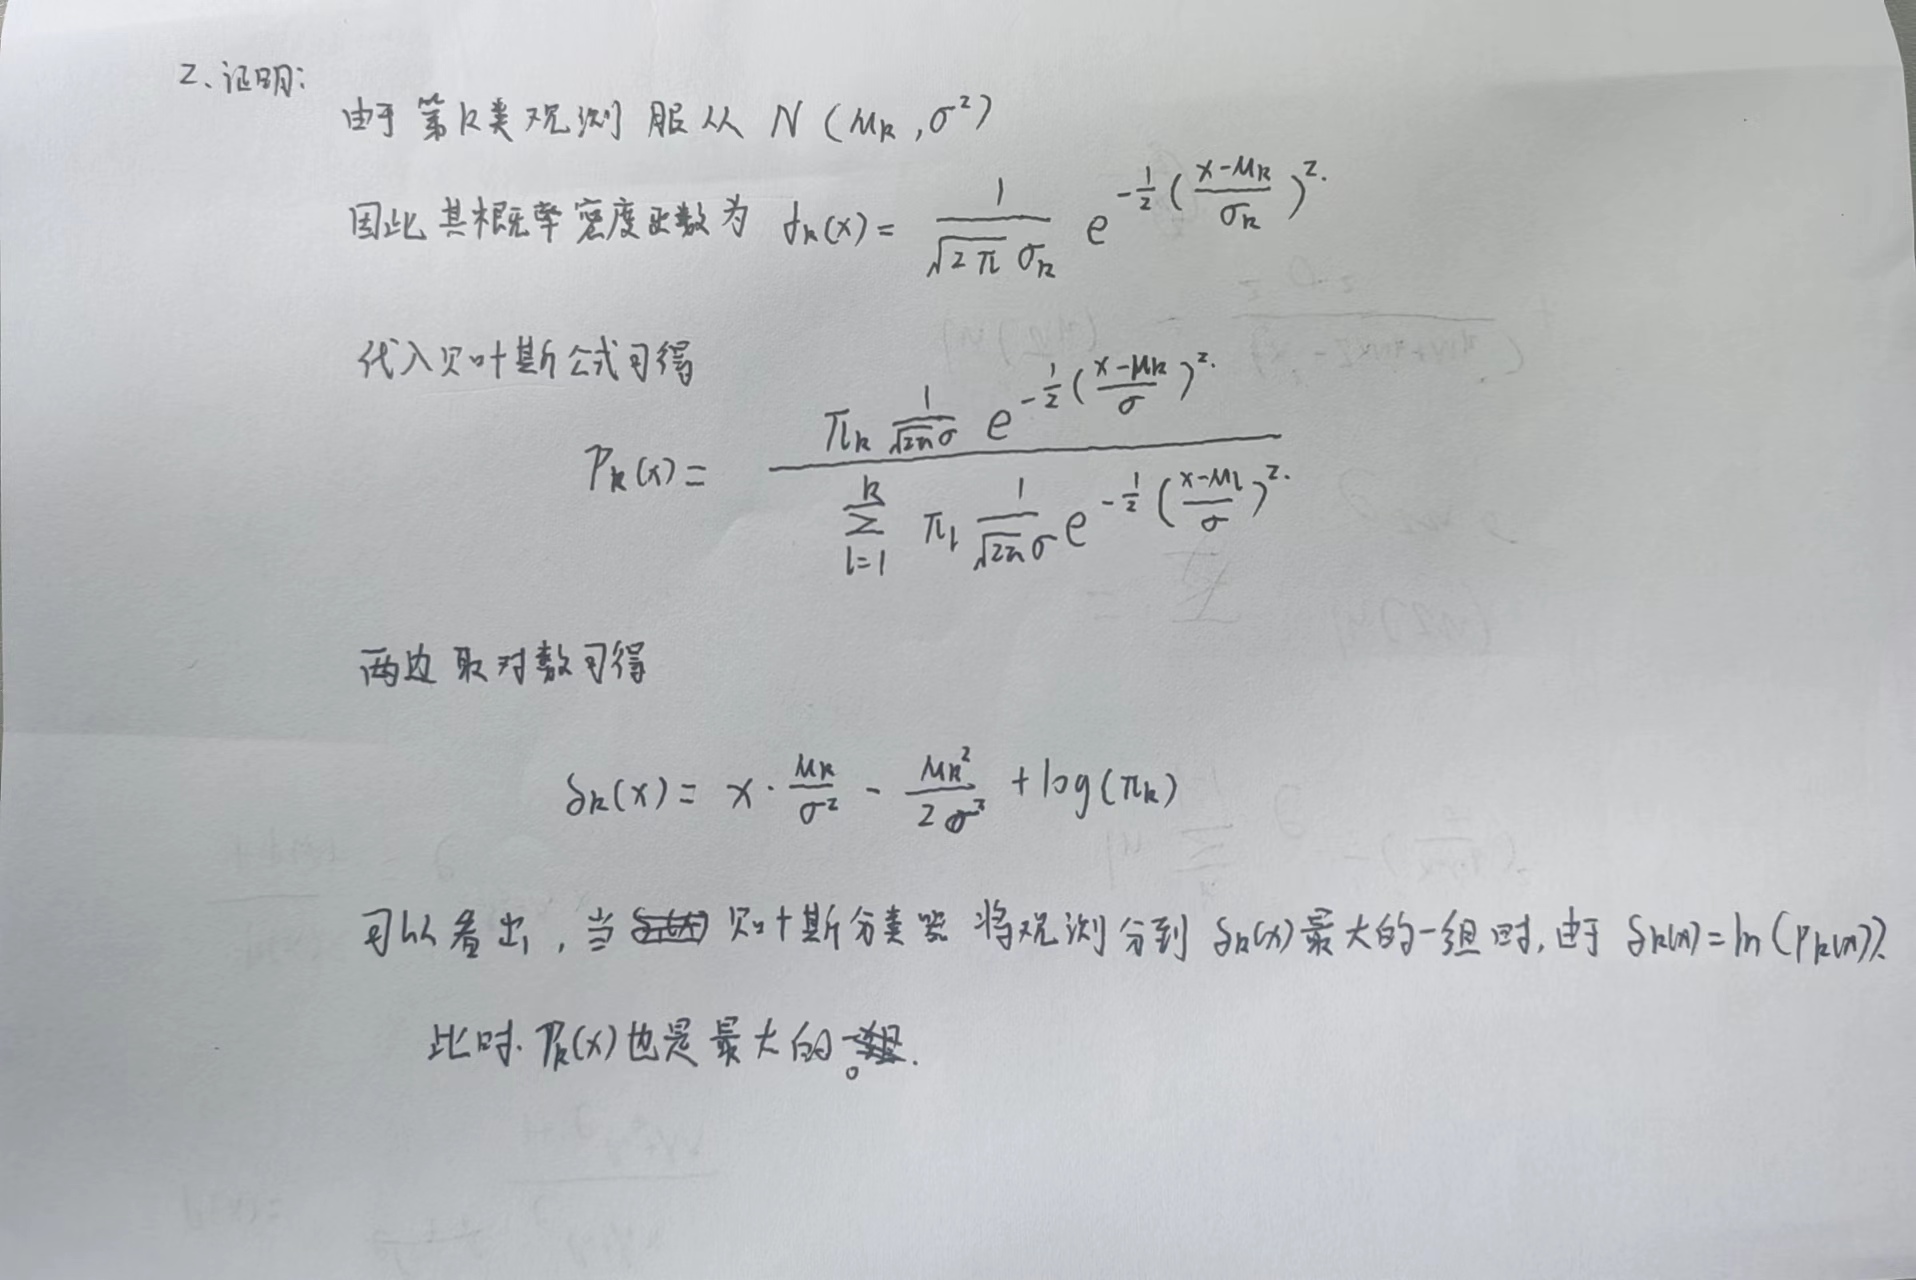 2、证明:
由于第k类观测服从 N(μk,σ²)
因此其概率密度函数为 fk(x)= 1/(√2π σk) e^(-1/2((x-μk)/σk)²)
代入贝叶斯公式可得
Pk(x)= (πk 1/(√2π σ) e^(-1/2((x-μk)/σ)²)) / (∑_{l=1}^{k} πl 1/(√2π σ) e^(-1/2((x-μl)/σ)²))
两边取对数可得
δk(x)= x·μk/σ² - μk²/(2σ²) +log(πk)
可以看出,当贝叶斯分类器将观测分到 δk(x)最大的一组时,由于 δk(x)=ln(Pk(x)).
此时.Pk(x)也是最大的。